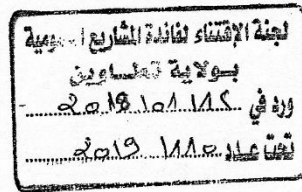 لجنة الإقتناء لفائدة المشاريع العمومية
بولاية تطاوين
ورد في
تحت عدد 2019